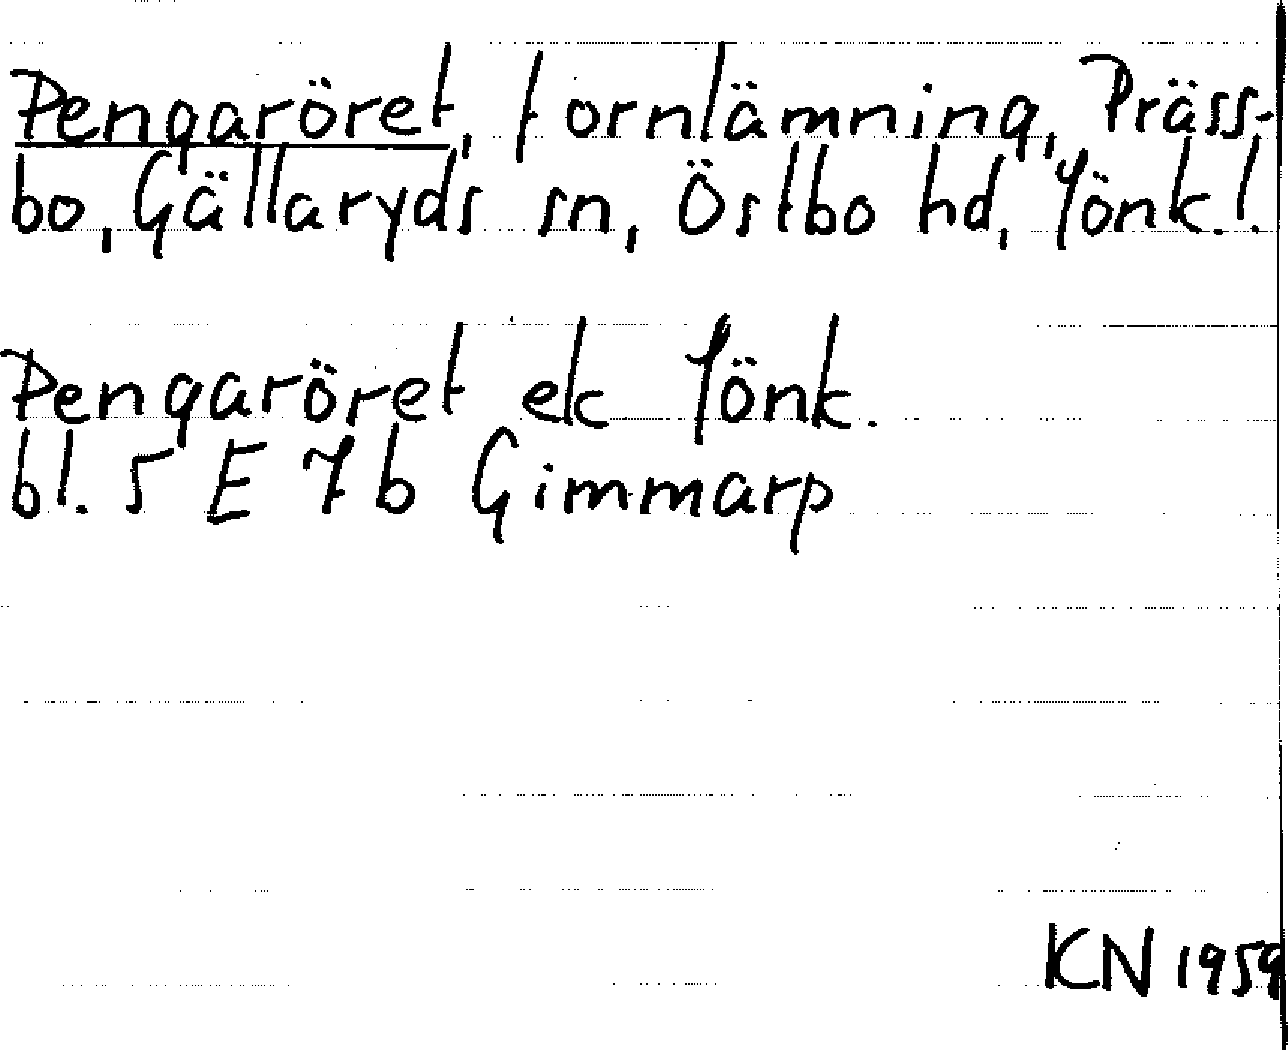 Pengaröret, fornlämning, Präss-
bo, Gällaryds sn, Östbo hd, Jönk. l.
Pengaröret ek Jönk.
bl. 5 E 7 b Gimmarp
KN 1959